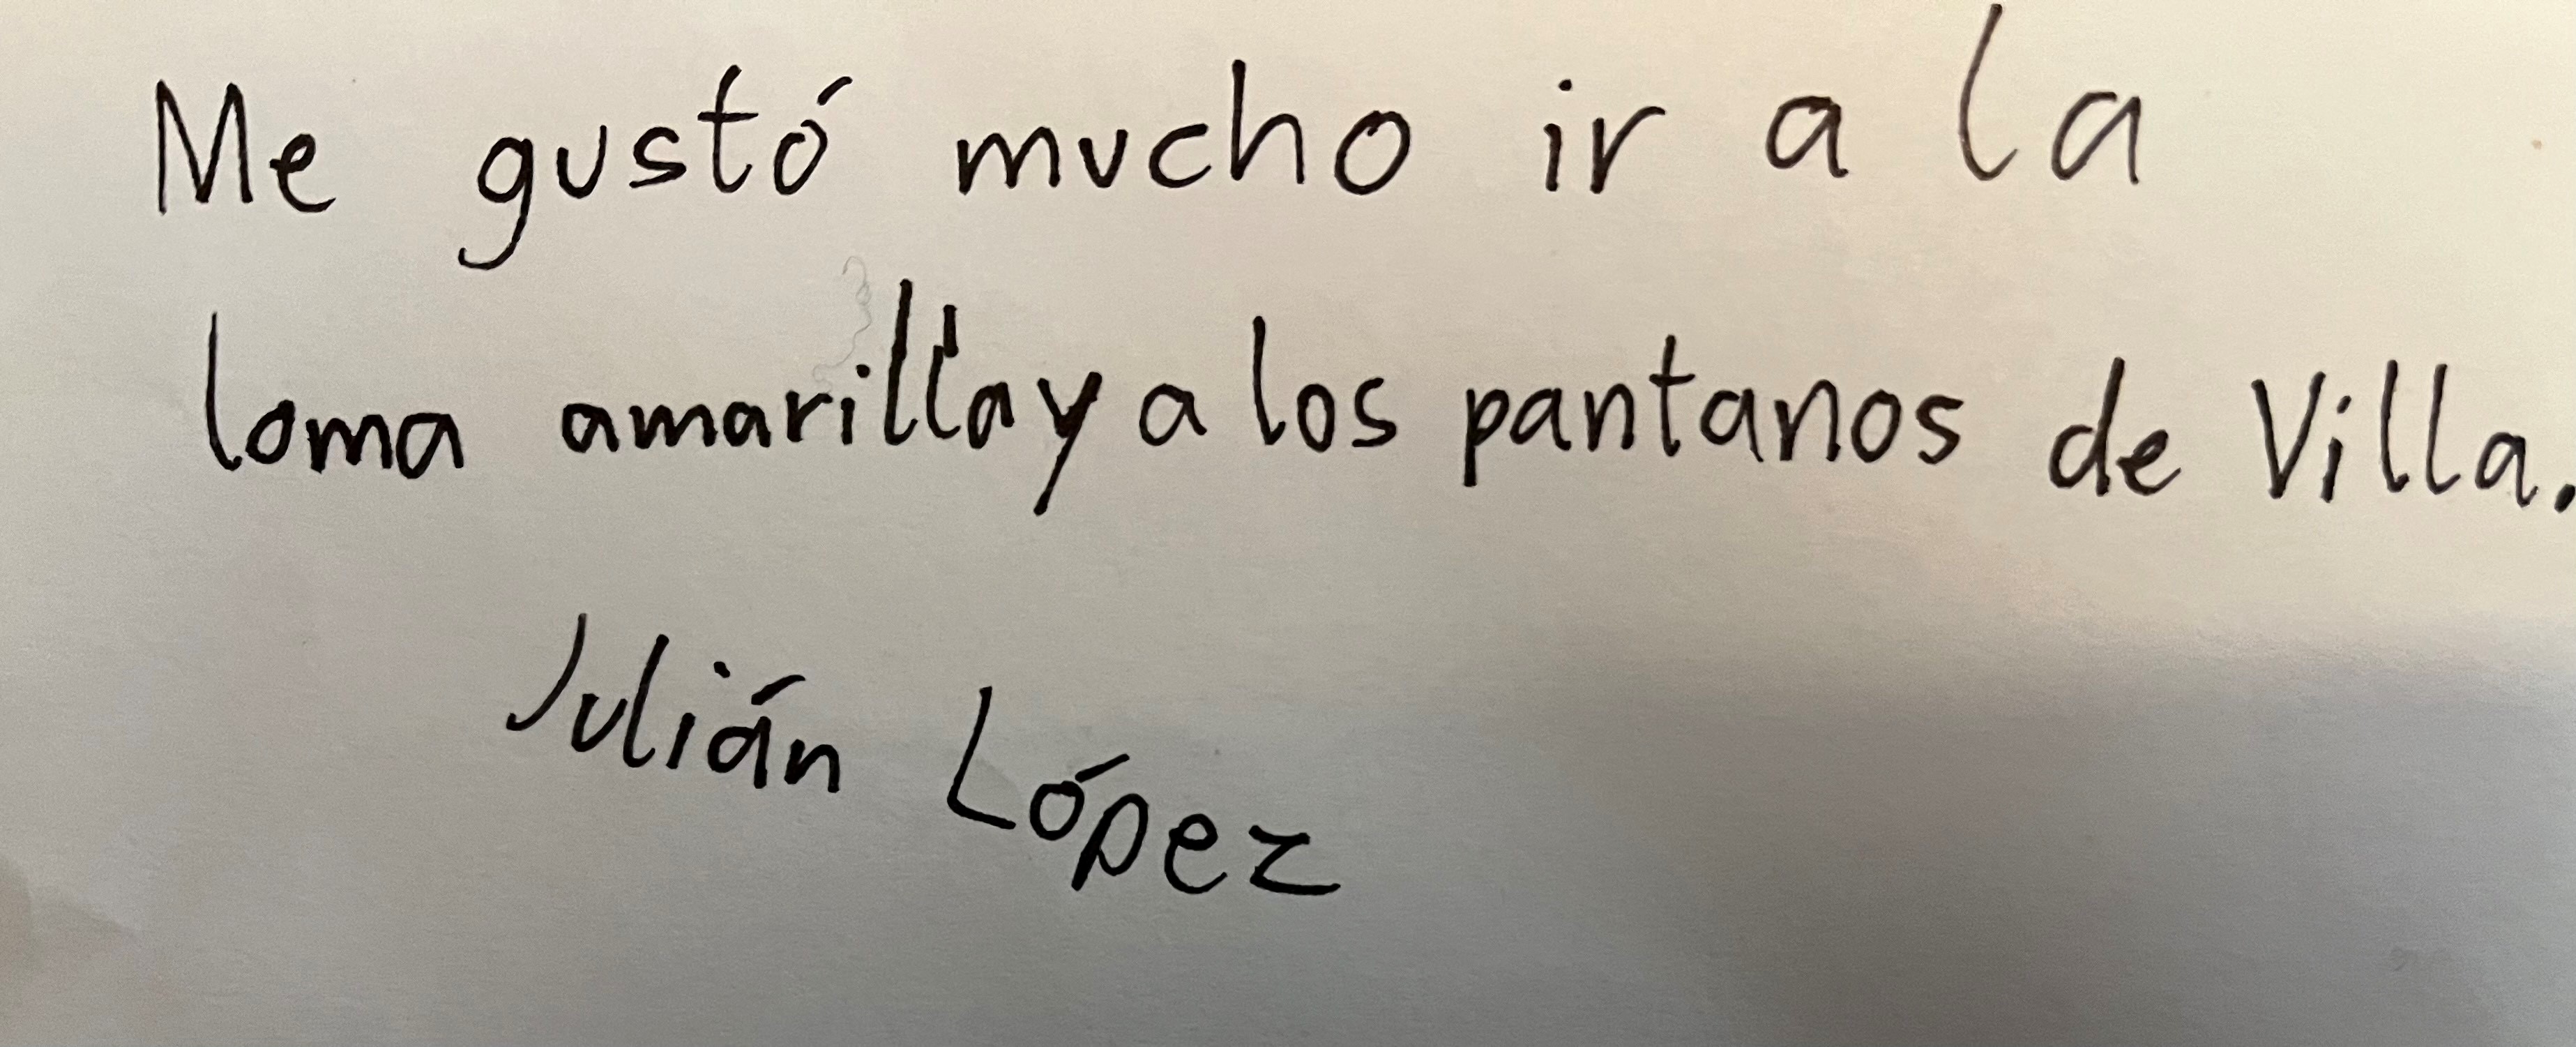 Me gustó mucho ir a la
loma amarilla y a los pantanos de Villa.
Julián López